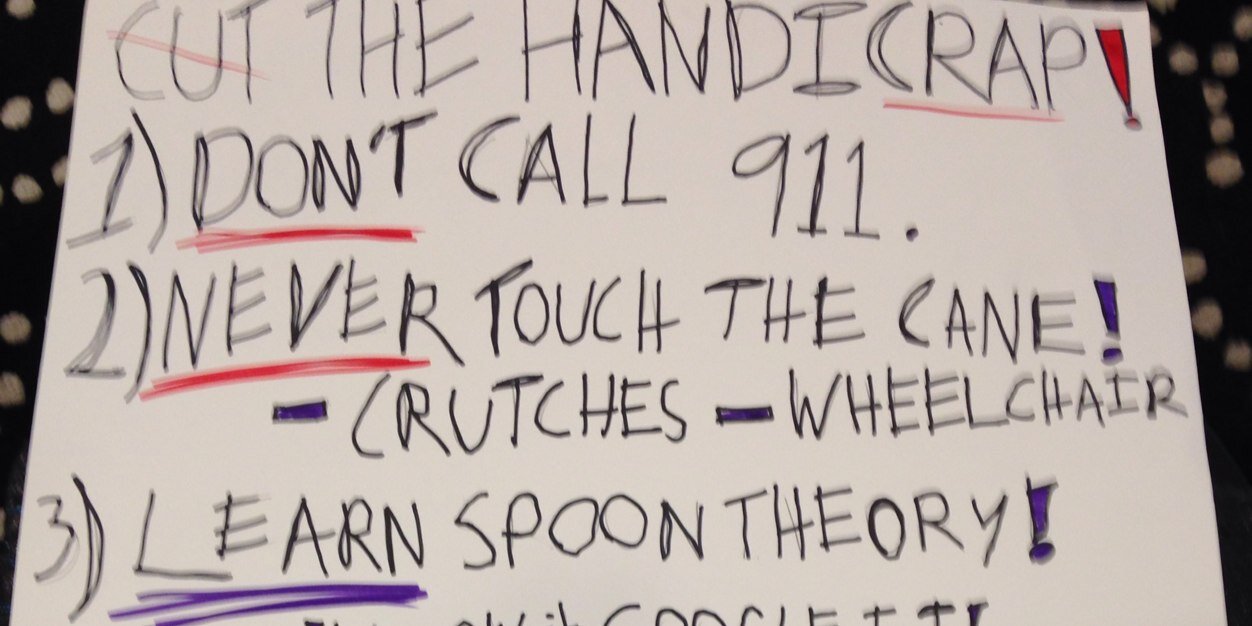 CUT THE HANDICRAP!
1) DON'T CALL 911.
2) NEVER TOUCH THE CANE!
- CRUTCHES - WHEELCHAIR
3) LEARN SPOON THEORY!
GOOGLE IT!